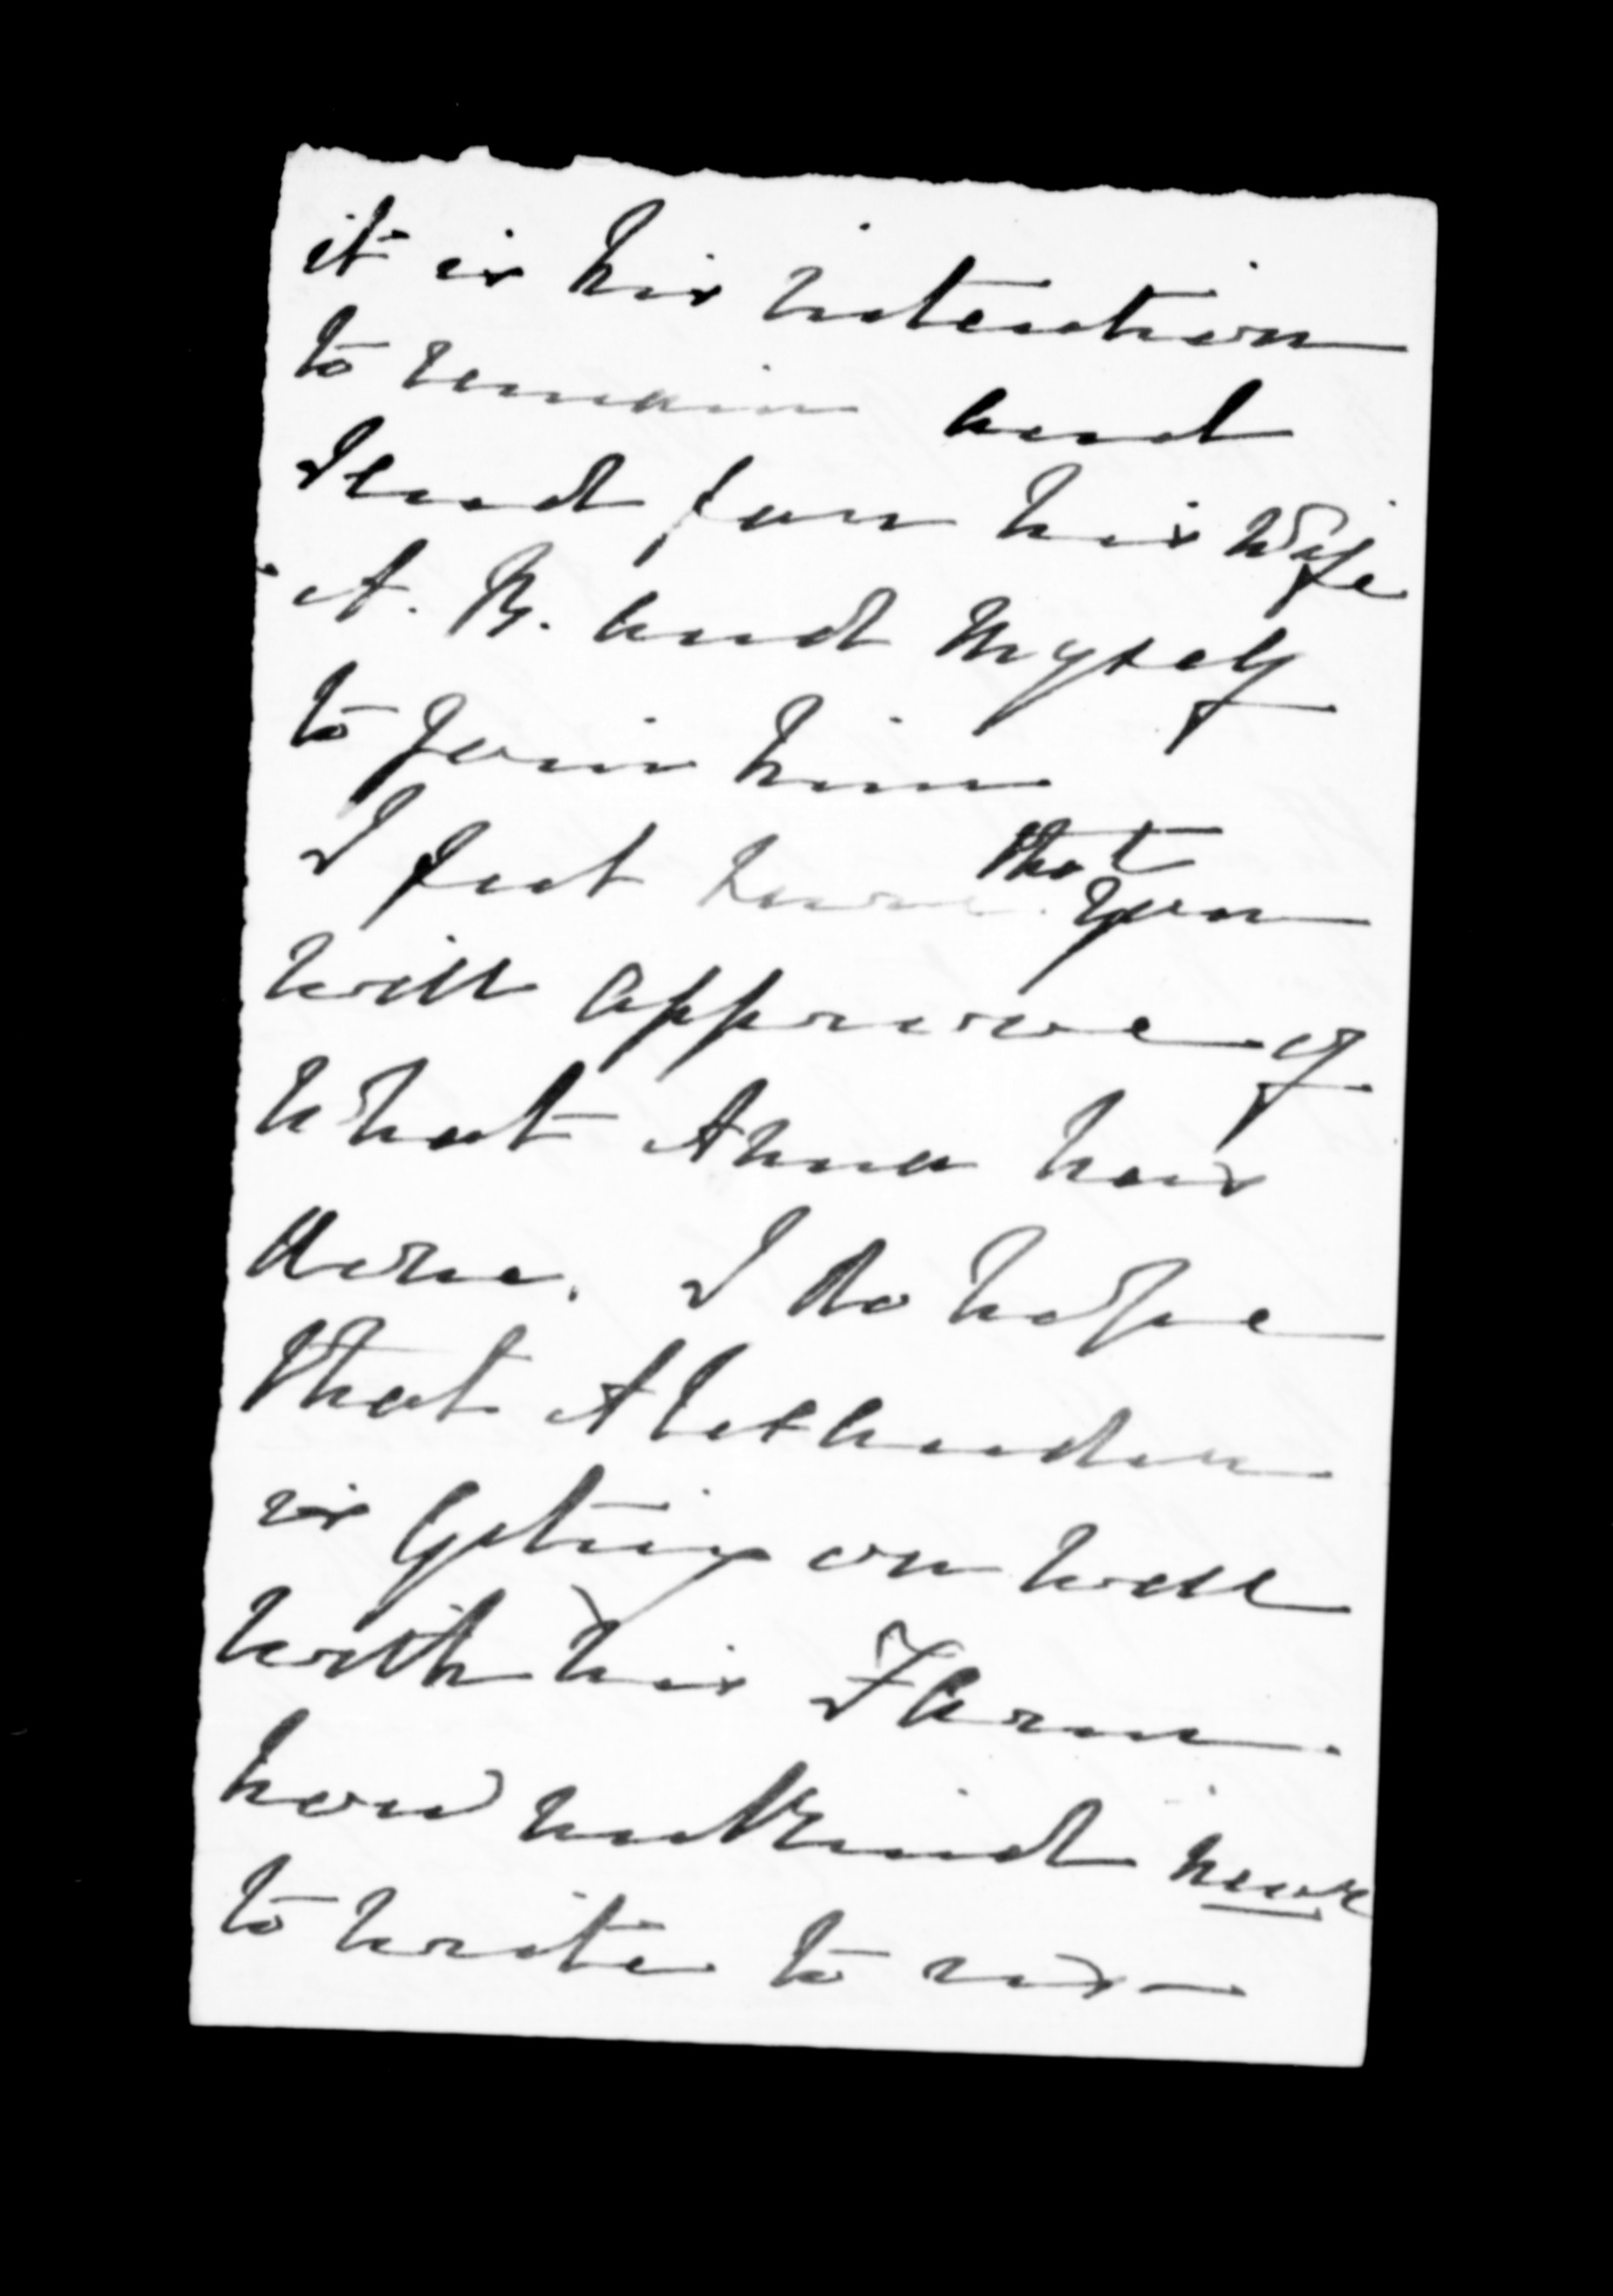 it is his intention
to remain and
Send for his Wife
A. B. and Myself
to join him
I feel sure that you
will approve of
what Anna has
done. I do hope
that Alexander
is Getting on well
with his Farm.
how unkind never
to write to us —